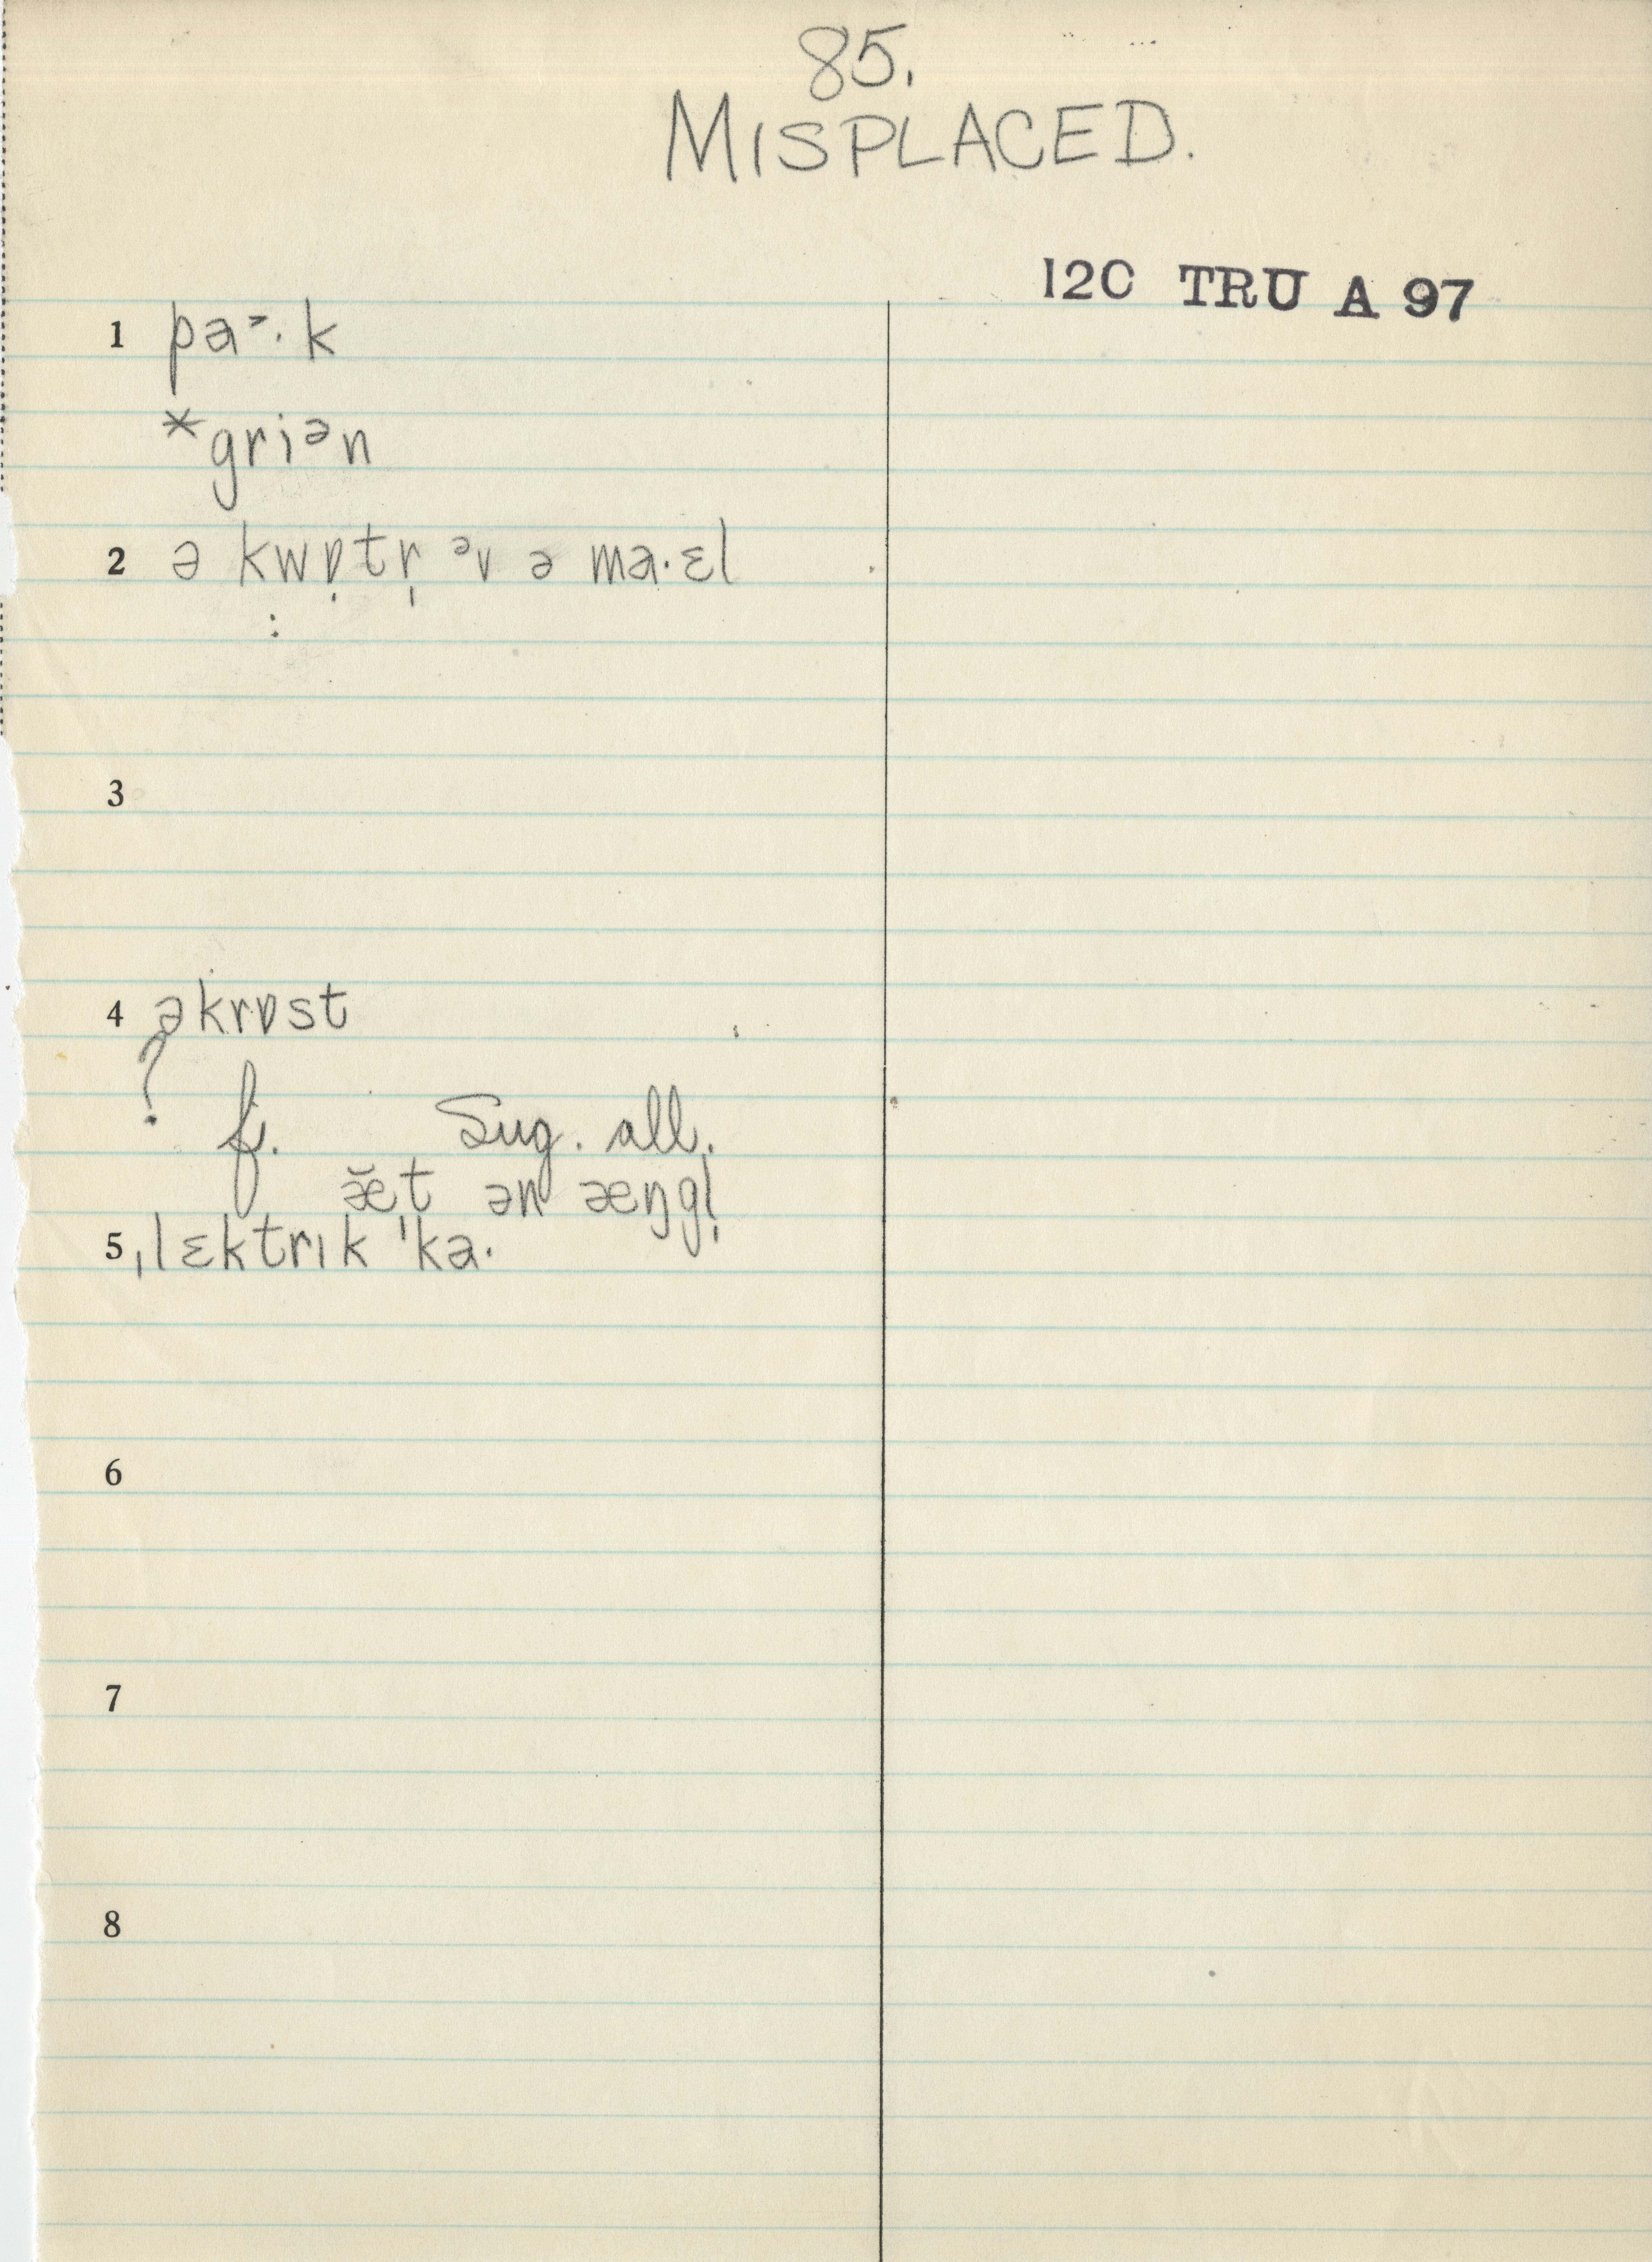 85.
MISPLACED.
12C TRU A 97
1 pa˃·k
*griᵊn
2 ə kwɒ̣tr̩ ᵊv ə ma·ɛl
:
3
4 əkrɒst
? f. Sug. all.
æ̆t ən æŋgl̩
5 ˌlɛktrɪk ˈka·
6
7
8